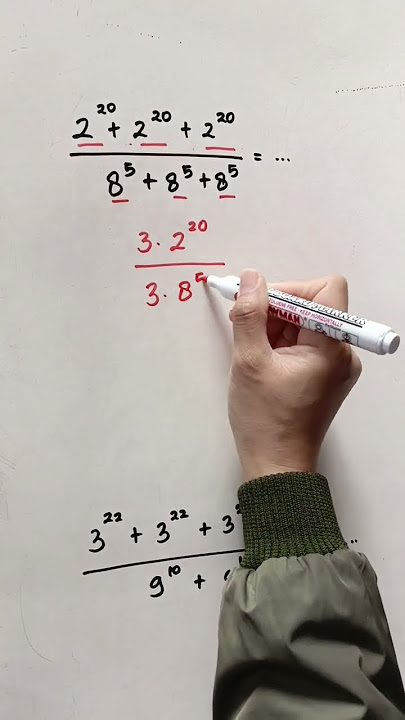 2²⁰ + 2²⁰ + 2²⁰
8⁵ + 8⁵ + 8⁵ = ...
3 · 2²⁰
3 · 8⁵
3²² + 3²² + 3
9¹⁰ +